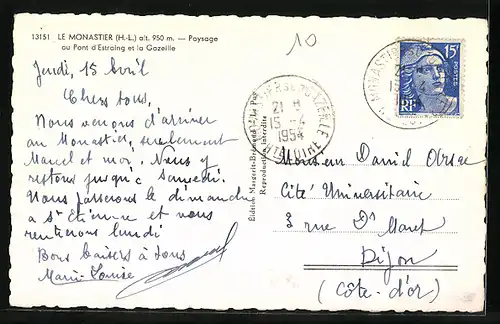 13151 LE MONASTIER (H.-L.) alt. 950 m. — Paysage
au Pont d'Estraing et la Gazeille
10
Jeudi, 15 Avril
Chers tous,
Nous venons d'arriver
au Monastier, seulement
Marcel et moi. Nous y
restons jusqu'à samedi.
Nous passerons le dimanche
à St Etienne et nous
rentrerons lundi
Bons baisers à tous
Marie-Louise
Edition Margerit-Brémond - Le Puy
Reproduction Interdite
21 H
15 -4
1954
HTE LOIRE
15F
POSTES
RF
Monsieur Daniel
Cité Universitaire
3 rue Dr Maret
Dijon
(Côte-d'or)